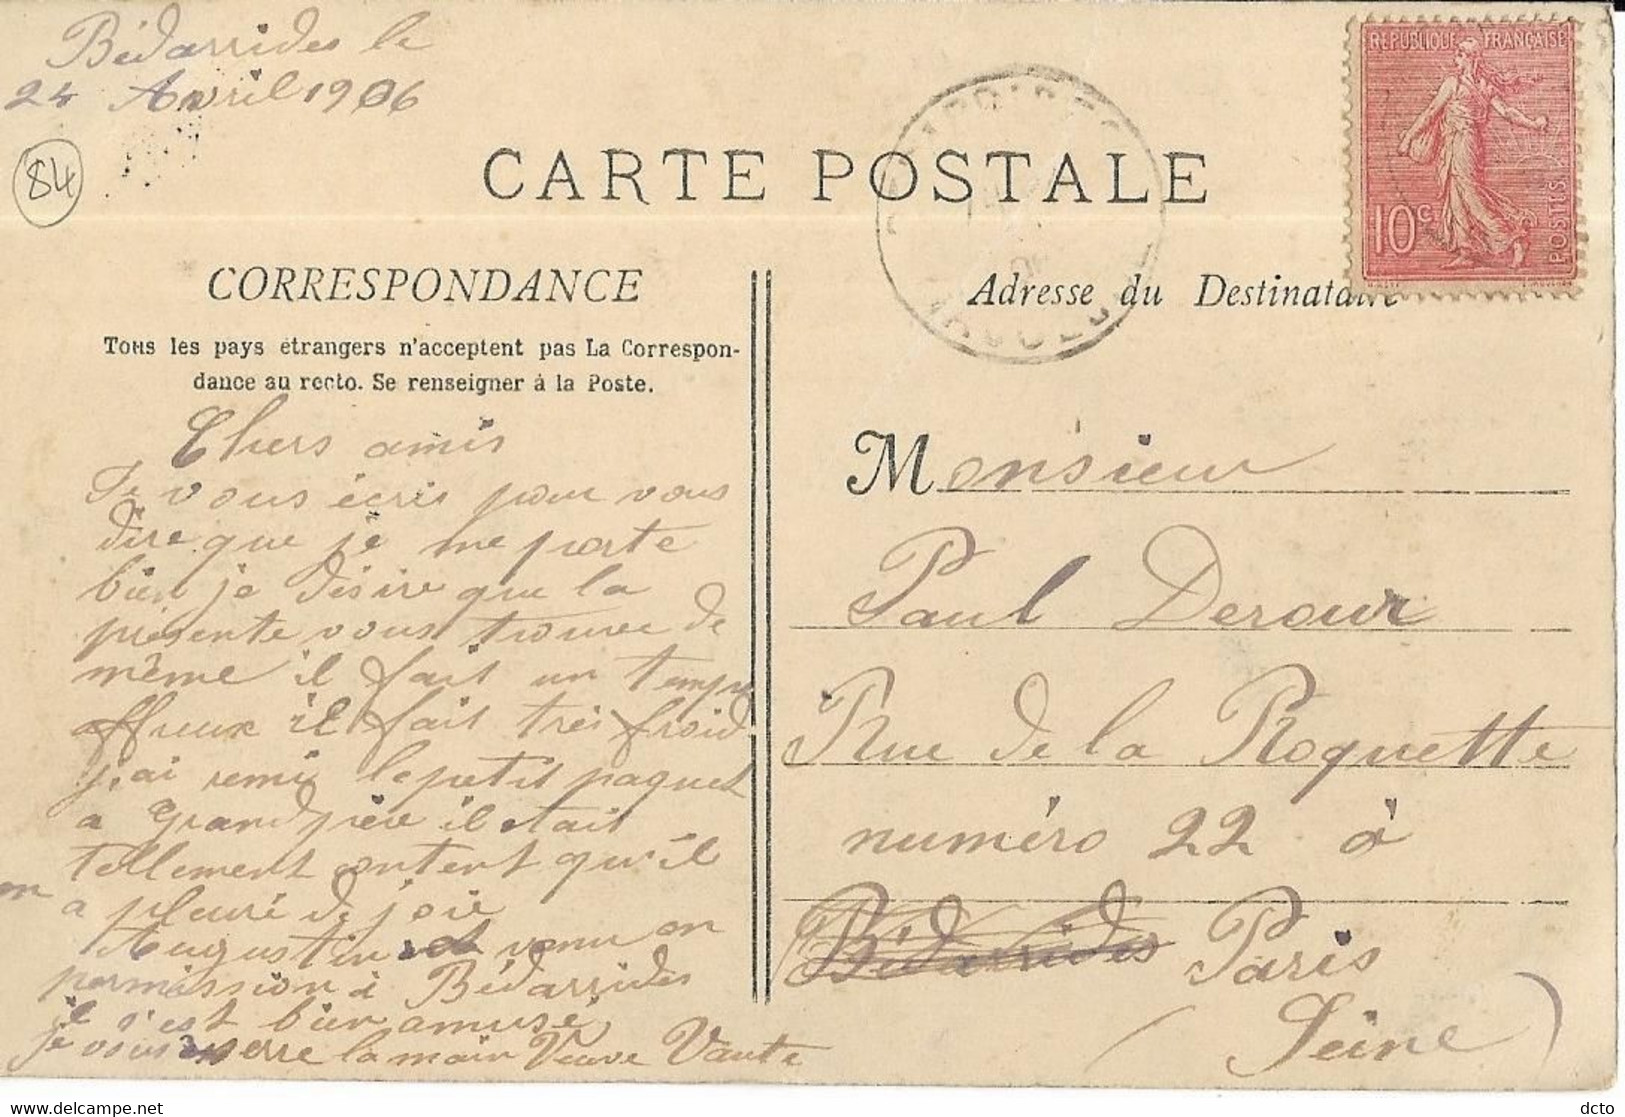 Bédarrides le
24 Avril 1906
84
CARTE POSTALE
REPUBLIQUE FRANÇAISE
10c
POSTES
CORRESPONDANCE
Tous les pays étrangers n'acceptent pas La Correspon-
dance au recto. Se renseigner à la Poste.
Chers amis
Je vous écris pour vous
dire que je me porte
bien je désire que la
présente vous trouve de
même il fait un temps
affreux il fait très froid
j'ai remi le petit paquet
a Grandpère il etait
tellement content qu'il
a pleuré de joie
Augustin est venu en
permission à Bédarrides
il s'est bien amusé
je vous serre la main Veuve
Adresse du Destinataire
Monsieur
Paul Deroux
Rue de la Roquette
numéro 22 à
Bédarrides Paris
(Seine)
delcampe.net
dcto